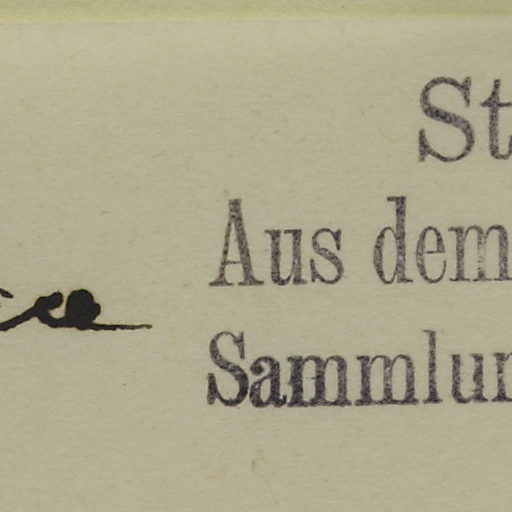 St
Aus dem
Sammlun